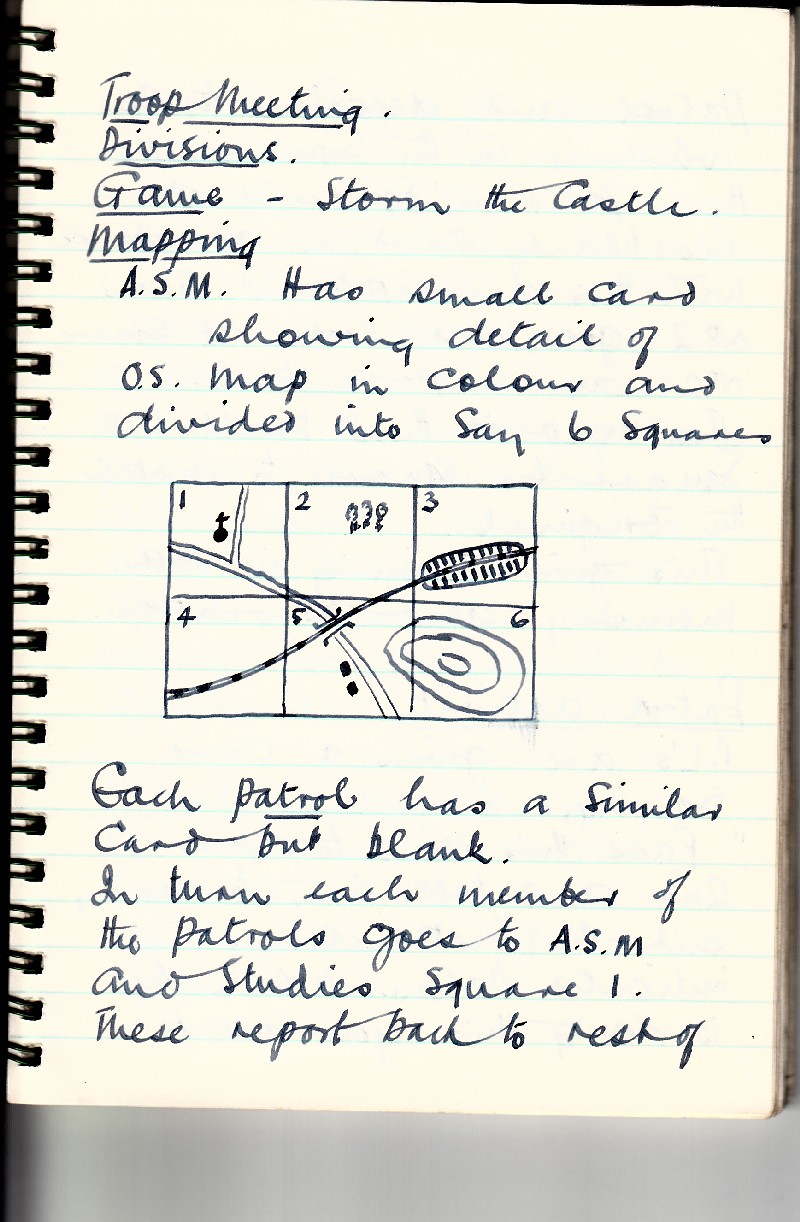 Troop Meeting.
Divisions.
Game - Storm the Castle.
Mapping
A.S.M. Has small card
showing detail of
O.S. Map in Colour and
divided into Say 6 Squares
1 2 3
4 5 6
Each patrol has a Similar
Card but blank.
In turn each member of
the Patrols goes to A.S.M
and Studies Square 1.
These report back to rest of